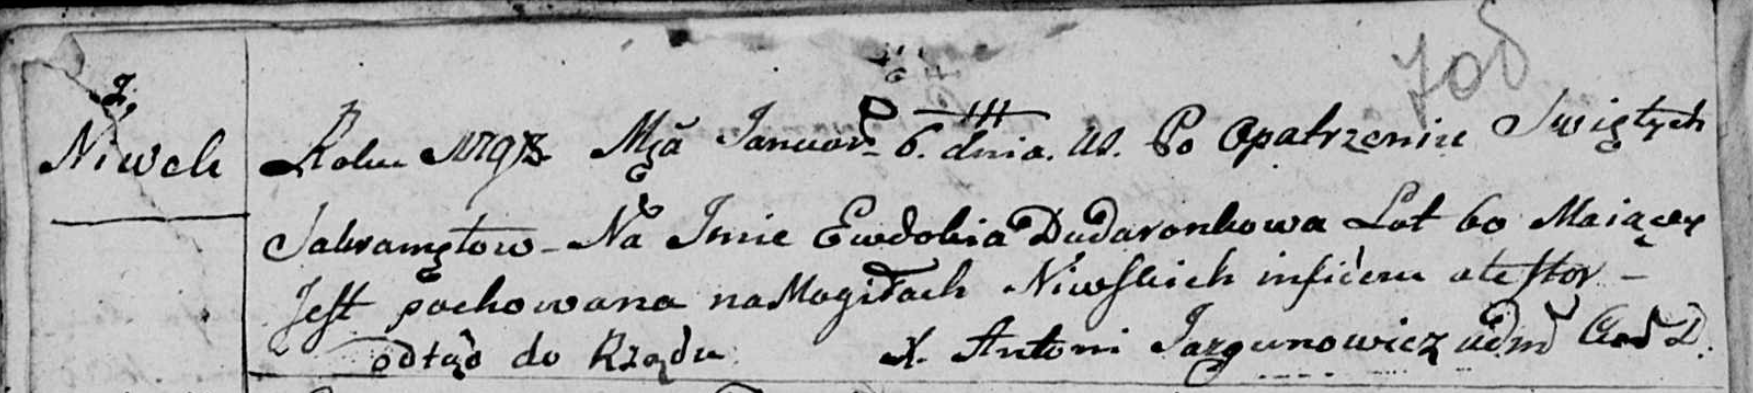 708
2,
Niwek
Roku 1798 Mca Januar. 6. dnia. Po Opatrzeniu Swiętych
Sakramętow - Na Jmie Ewdokia Dudaronkowa Lat 60 Maiący
Jest pochowana na Mogiłach Niwskich in fidem atestor -
odtąd do Rządu X. Antoni Jazgunowicz adm